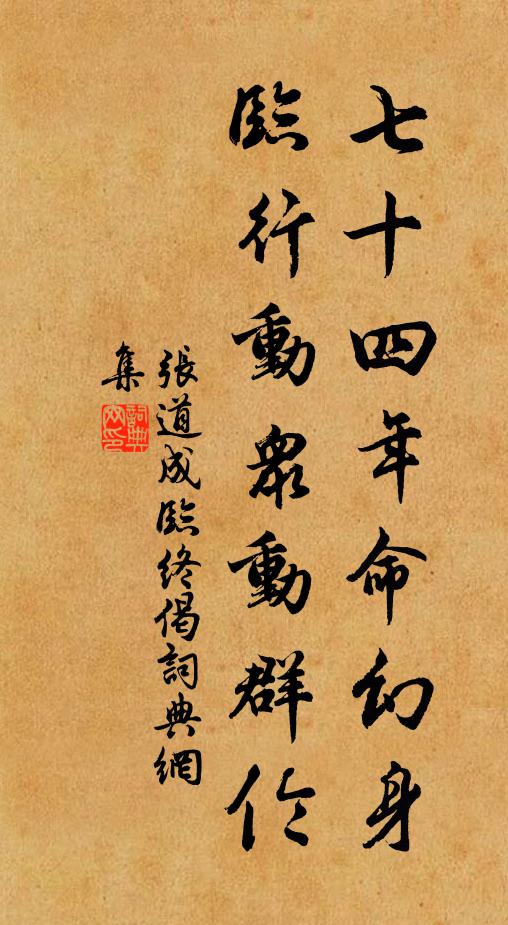 七十四年命幻身
臨行動眾動群倫
張道成臨終偈詞典網
集
詞典
网印